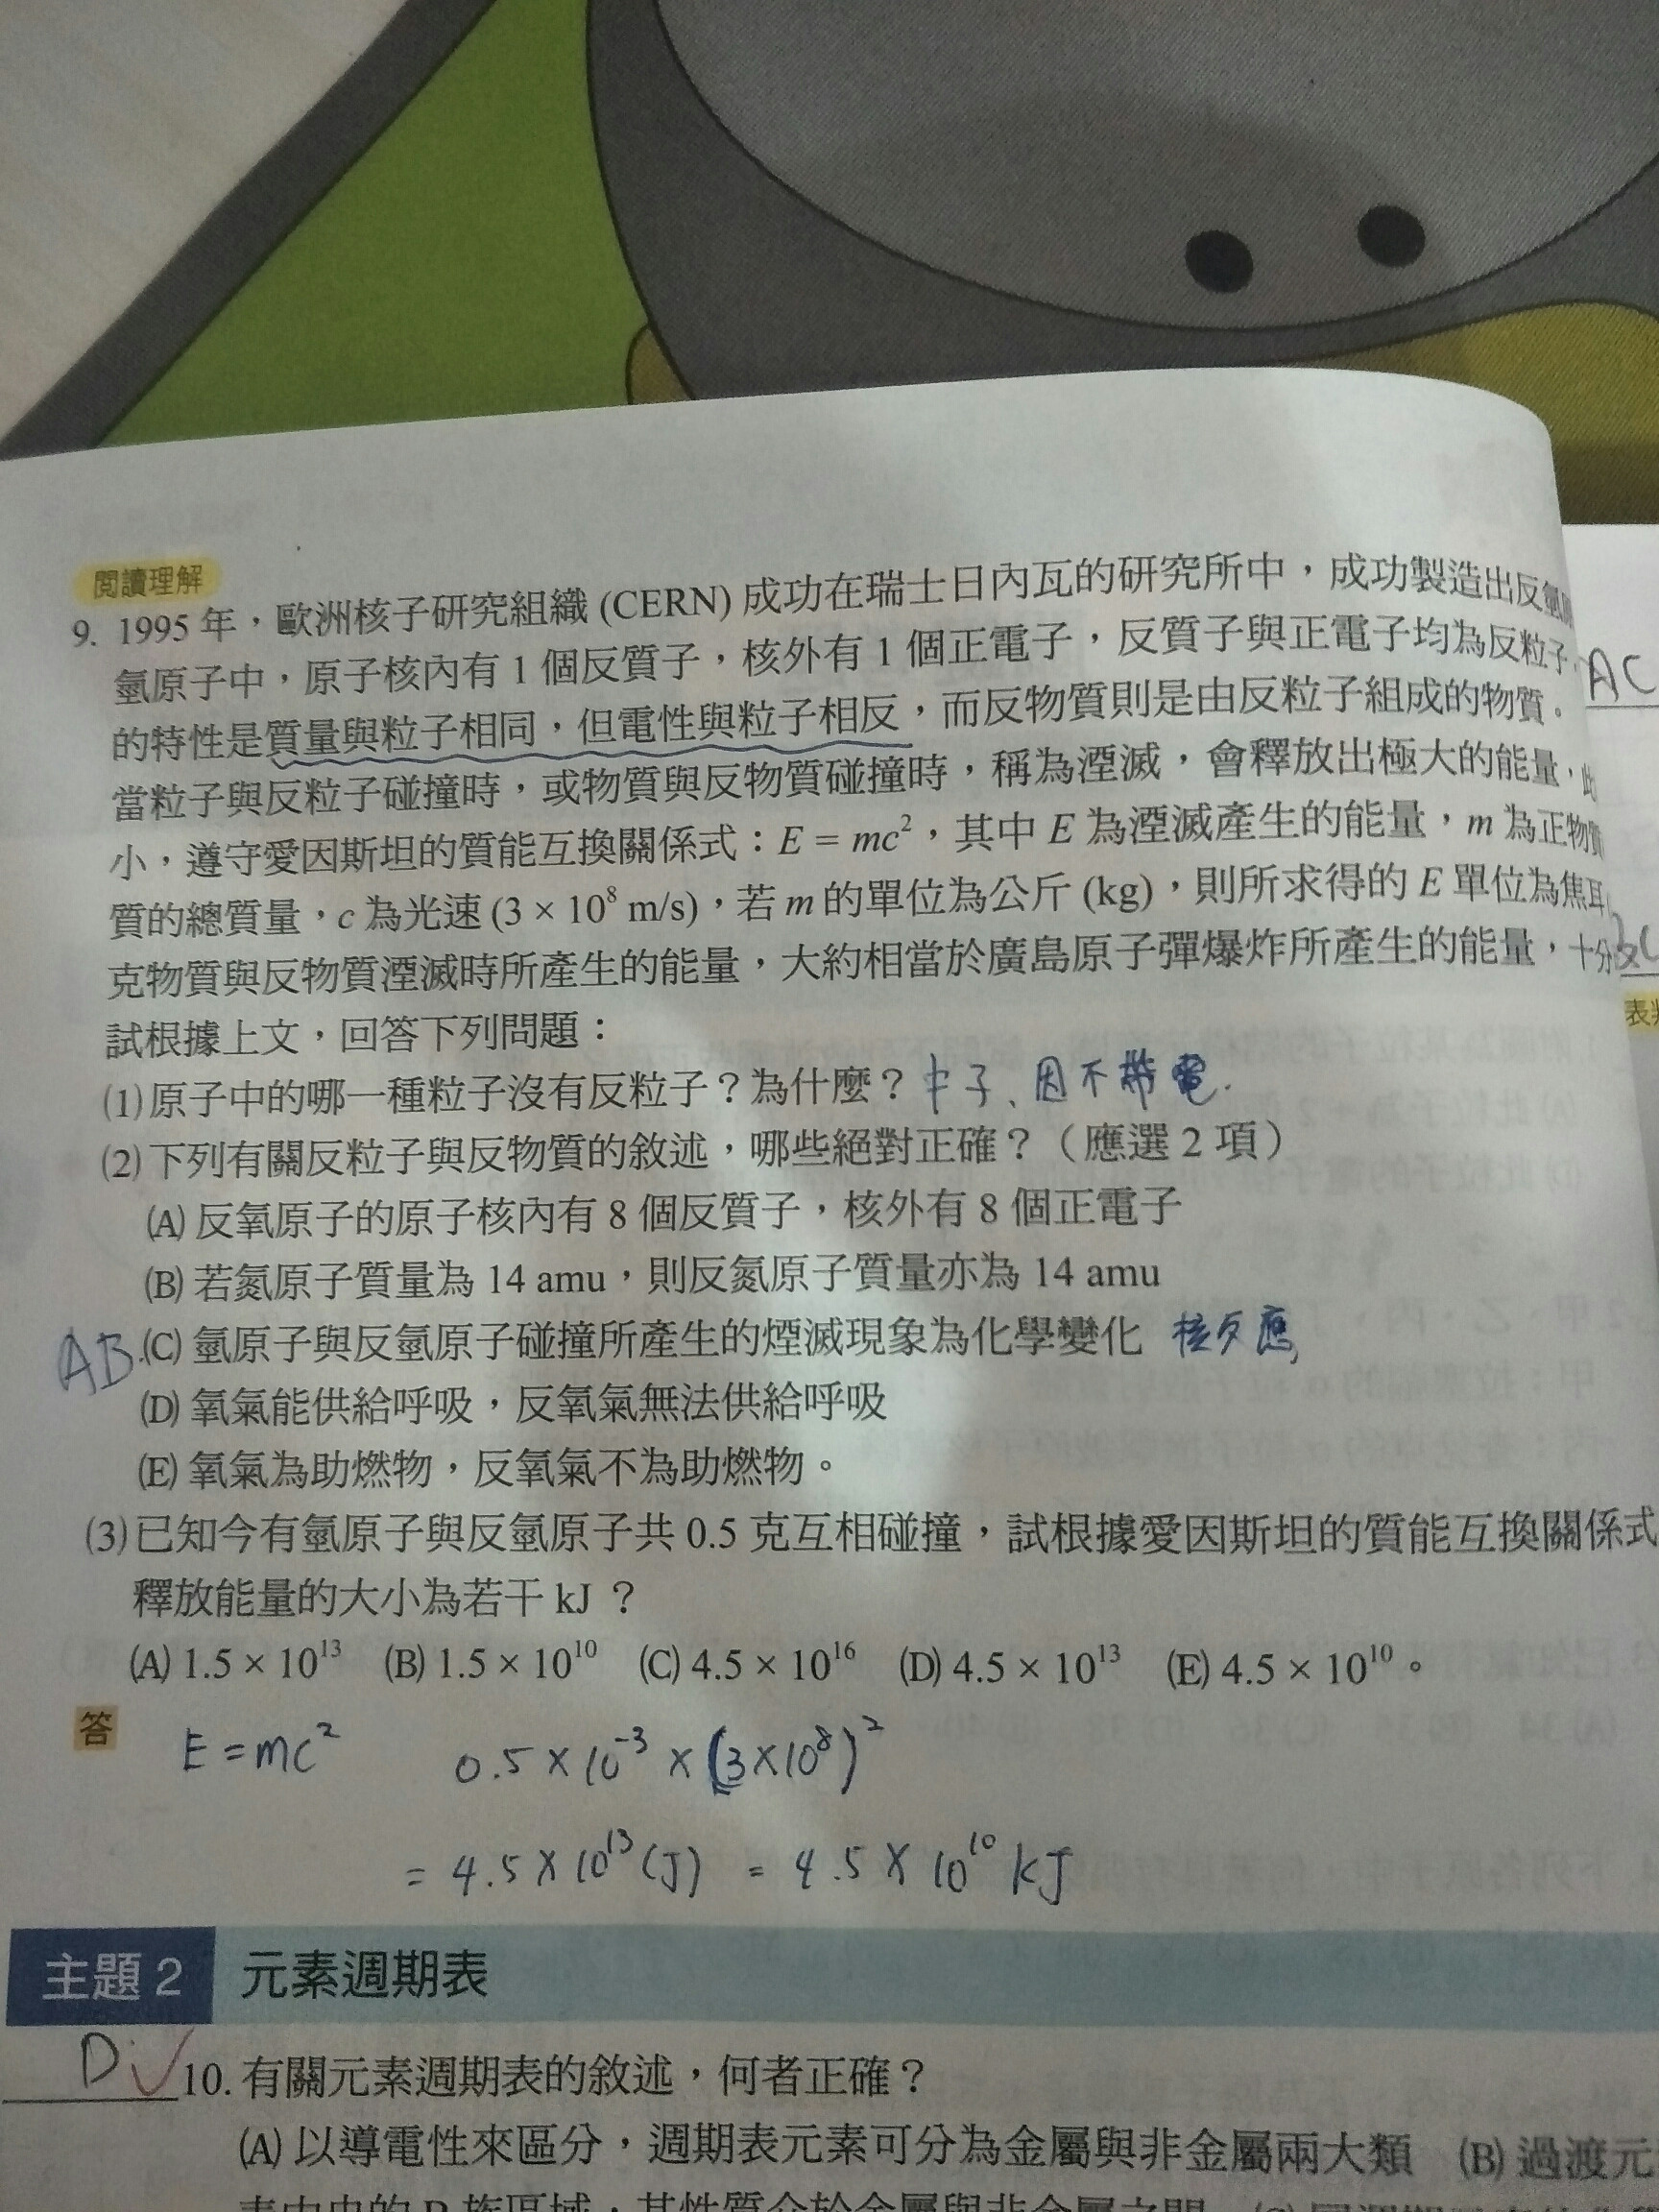 閱讀理解
9. 1995 年，歐洲核子研究組織 (CERN) 成功在瑞士日內瓦的研究所中，成功製造出反氫
氫原子中，原子核內有 1 個反質子，核外有 1 個正電子，反質子與正電子均為反粒子，
AC
的特性是質量與粒子相同，但電性與粒子相反，而反物質則是由反粒子組成的物質。
當粒子與反粒子碰撞時，或物質與反物質碰撞時，稱為湮滅，會釋放出極大的能量，此
小，遵守愛因斯坦的質能互換關係式：E = mc²，其中 E 為湮滅產生的能量，m 為正物質
質的總質量，c 為光速 (3 × 10⁸ m/s)，若 m 的單位為公斤 (kg)，則所求得的 E 單位為焦耳
克物質與反物質湮滅時所產生的能量，大約相當於廣島原子彈爆炸所產生的能量，十分
試根據上文，回答下列問題：
(1)原子中的哪一種粒子沒有反粒子？為什麼？ 中子、因不帶電.
(2)下列有關反粒子與反物質的敘述，哪些絕對正確？（應選 2 項）
(A) 反氧原子的原子核內有 8 個反質子，核外有 8 個正電子
(B) 若氮原子質量為 14 amu，則反氮原子質量亦為 14 amu
AB (C) 氫原子與反氫原子碰撞所產生的煙滅現象為化學變化 核反應
(D) 氧氣能供給呼吸，反氧氣無法供給呼吸
(E) 氧氣為助燃物，反氧氣不為助燃物。
(3)已知今有氫原子與反氫原子共 0.5 克互相碰撞，試根據愛因斯坦的質能互換關係式
釋放能量的大小為若干 kJ ？
(A) 1.5 × 10¹³ (B) 1.5 × 10¹⁰ (C) 4.5 × 10¹⁶ (D) 4.5 × 10¹³ (E) 4.5 × 10¹⁰。
答 E = mc² 0.5 × 10⁻³ × (3×10⁸)²
= 4.5 × 10¹³ (J) = 4.5 × 10¹⁰ kJ
主題 2 元素週期表
D 10. 有關元素週期表的敘述，何者正確？
(A) 以導電性來區分，週期表元素可分為金屬與非金屬兩大類 (B) 過渡元